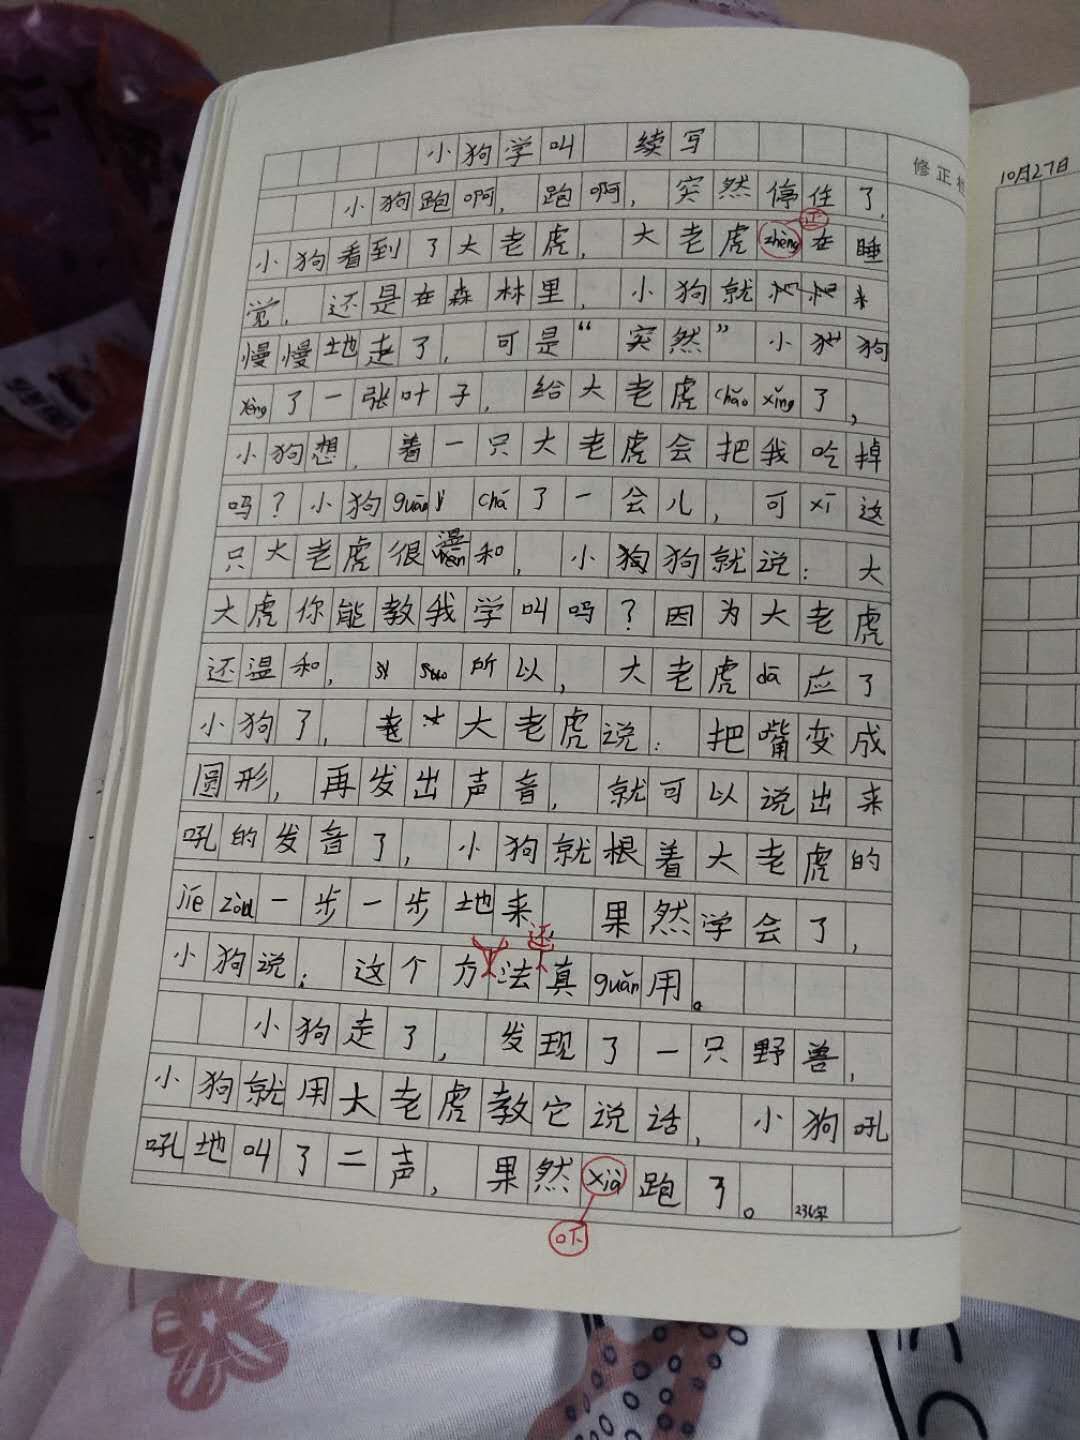 小狗学叫 续写
修正栏
10月27日
小狗跑啊，跑啊，突然停住了，
正
小狗看到了大老虎，大老虎zhèng在睡
觉，还是在森林里，小狗就
慢慢地走了，可是“突然”小狗
了一张叶子，给大老虎chǎo xǐng了，
小狗想，着一只大老虎会把我吃掉
吗？小狗guān chá了一会儿，可xī这
只大老虎很温和，小狗狗就说：大
大虎你能教我学叫吗？因为大老虎
还温和，所以，大老虎dā应了
小狗了，大老虎说：把嘴变成
圆形，再发出声音，就可以说出来
吼的发音了，小狗就根着大老虎的
jié zòu一步一步地来 果然学会了，
还
小狗说：这个方法真guǎn用。
小狗走了，发现了一只野兽，
小狗就用大老虎教它说话，小狗吼
吼地叫了二声，果然xià跑了。236字
吓